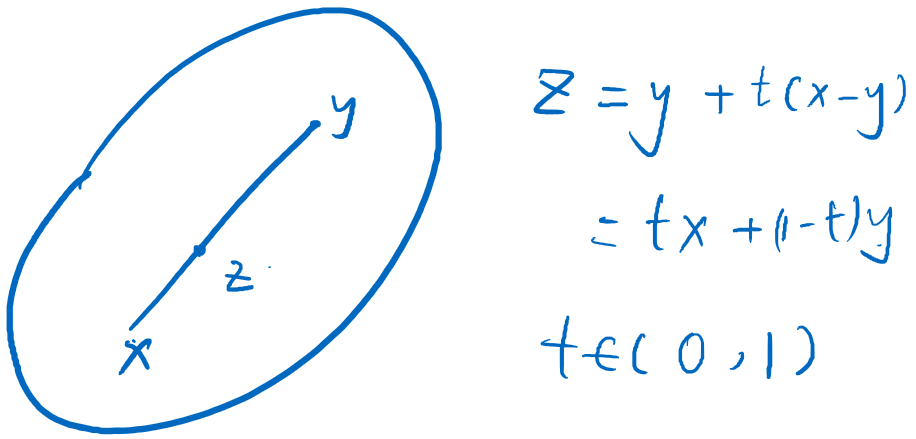 y
z
x
z = y + t(x-y)
= tx + (1-t)y
t∈(0,1)